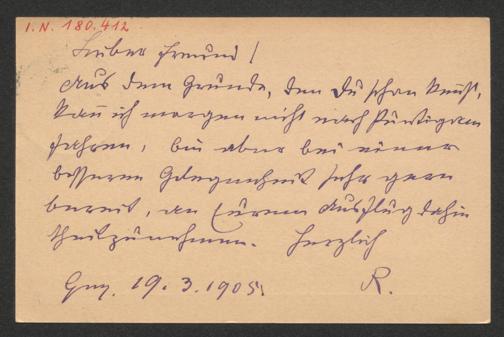 I.N. 180.412
Lieber Freund!
Aus dem Grunde, den Du schon kennst,
kann ich morgen nicht nach
fahren, bin aber bei einer
besseren Gelegenheit sehr gern
bereit, an Eurem Ausflug dahin
theilzunehmen. Herzlich
19.3.1905. R.